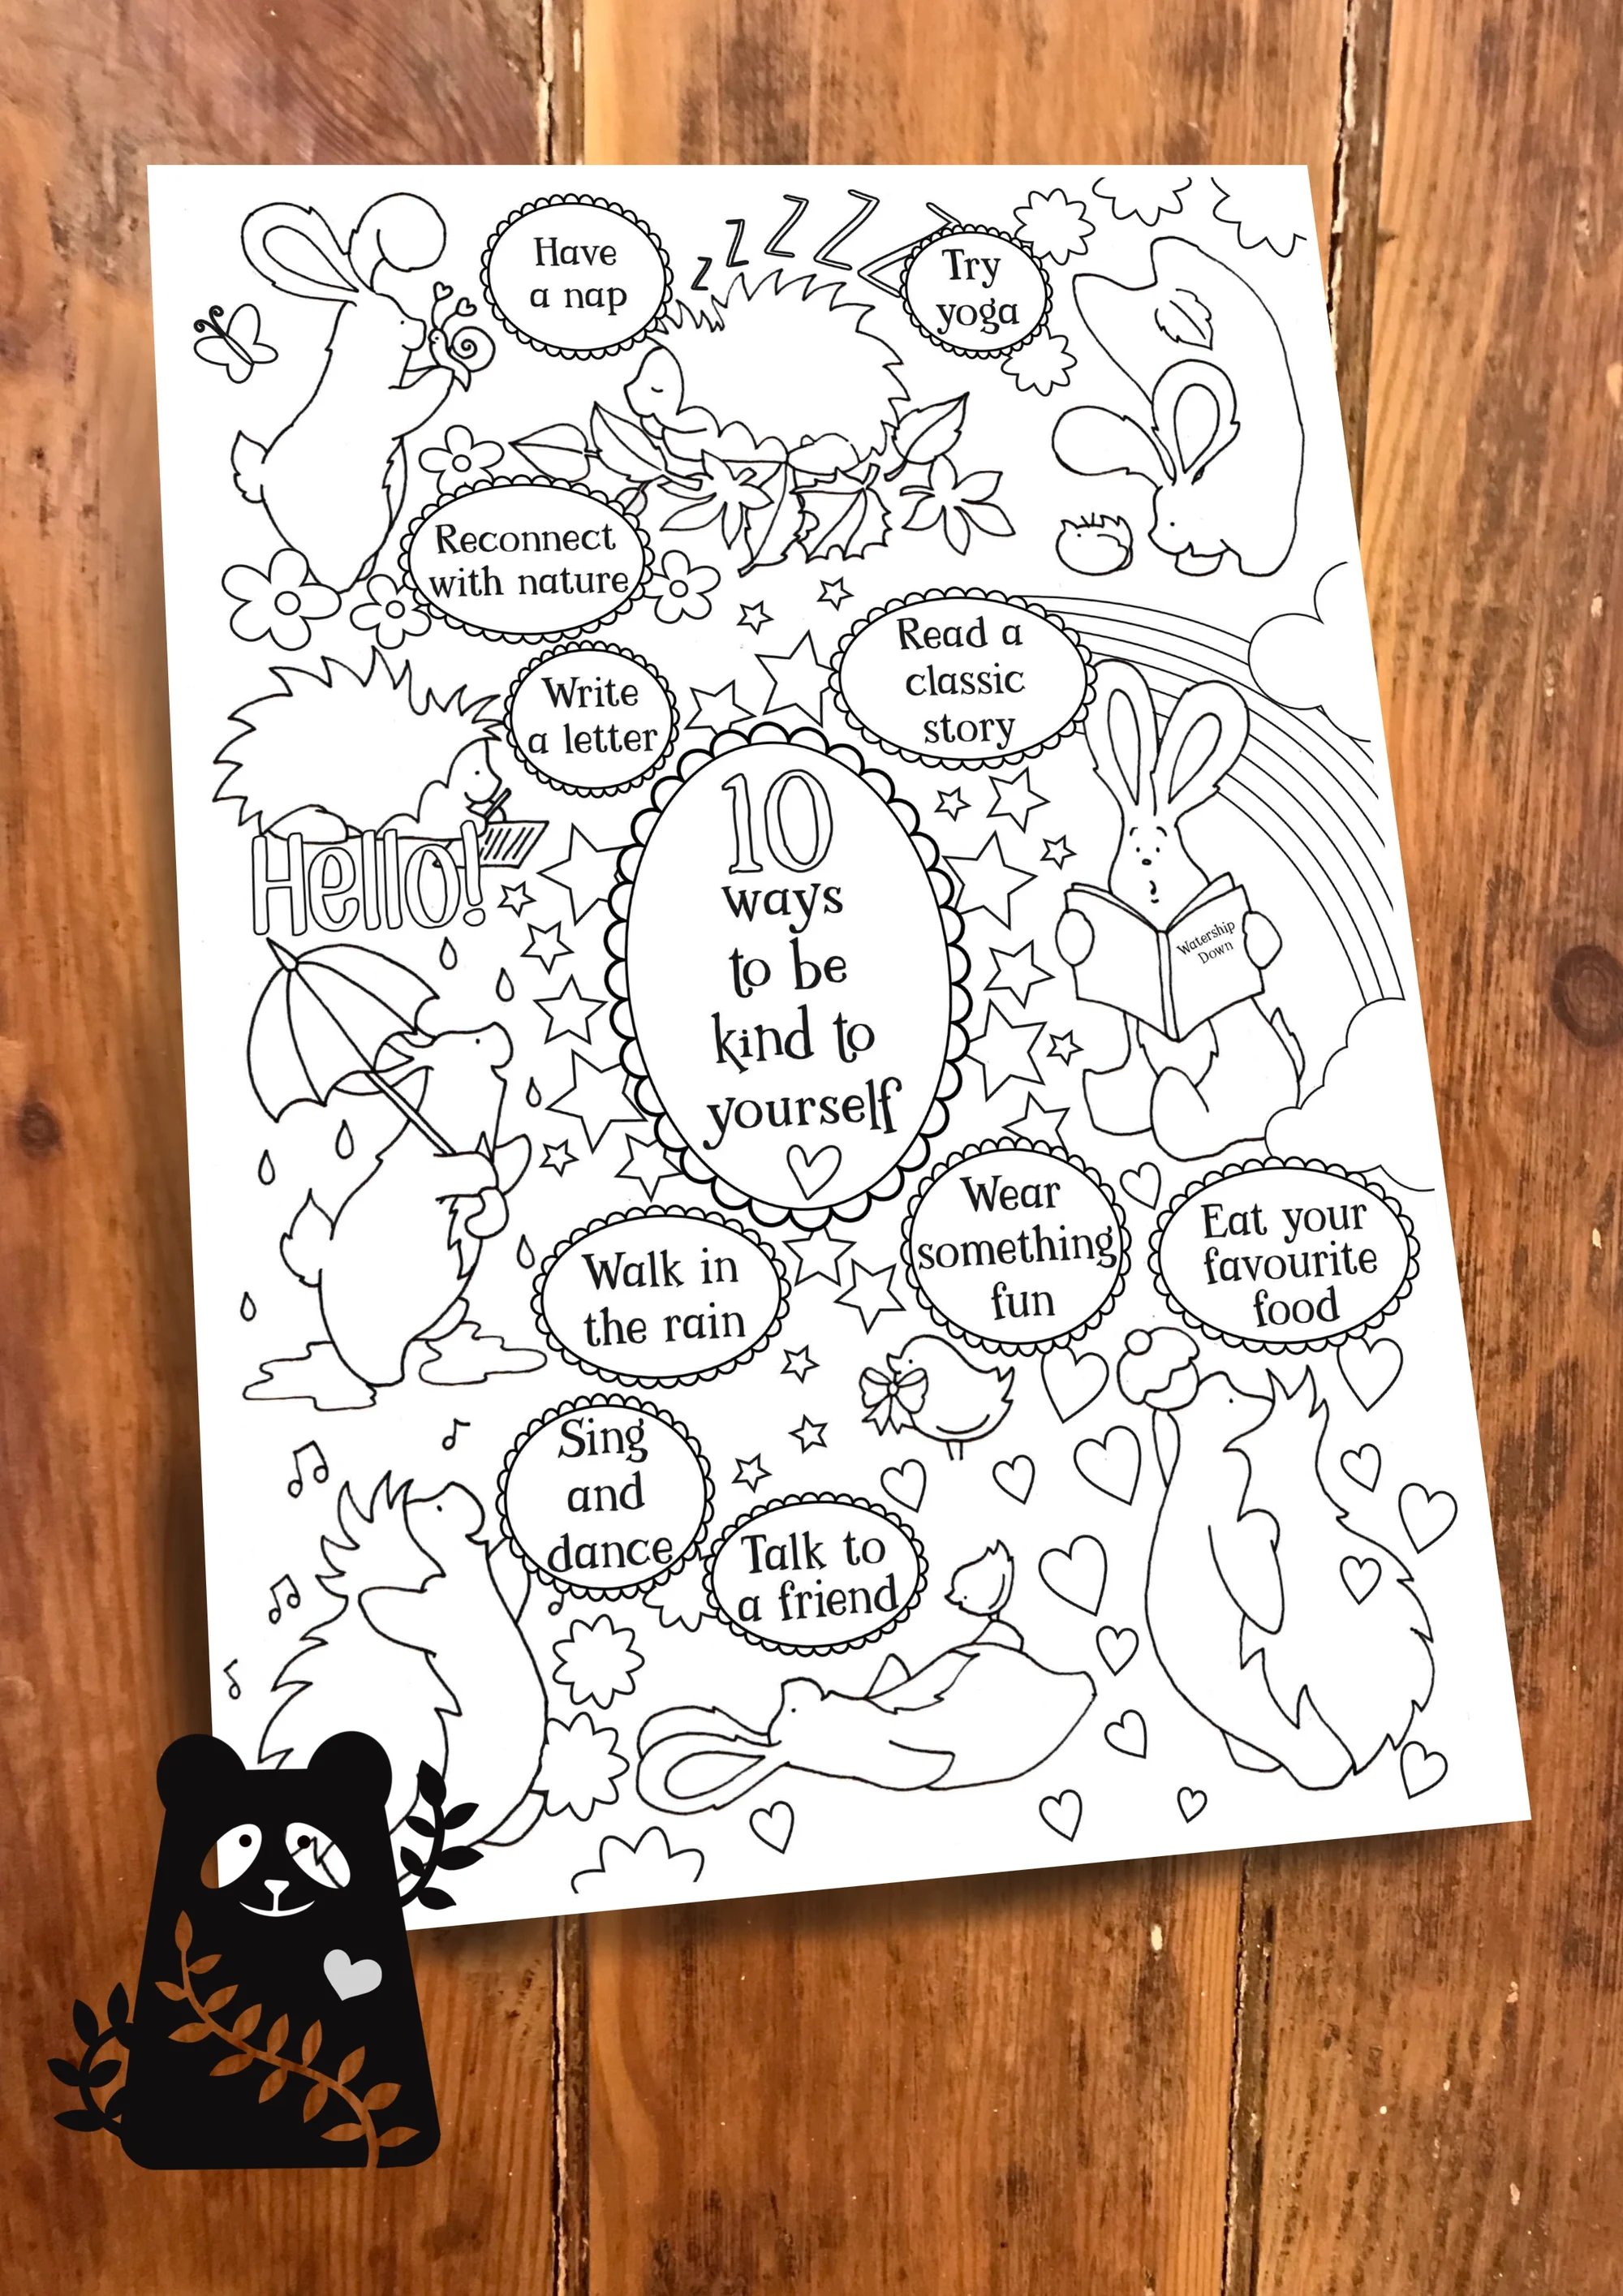 Have
a nap
z z z z z
Try
yoga
Reconnect
with nature
Write
a letter
Read a
classic
story
Hello!
10
ways
to be
kind to
yourself
Watership
Down
Walk in
the rain
Wear
something
fun
Eat your
favourite
food
Sing
and
dance
Talk to
a friend